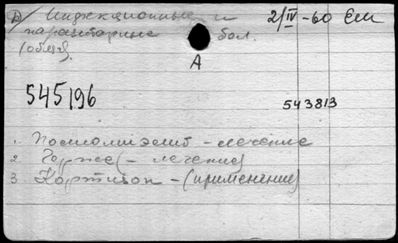 Инфекционные и 2/IV-60 Ем
паразитарные бол.
(общ).
А
545196
543813
1. Полиомиэлит - лечение
2. - лечение)
3. Кортизон - (применение)